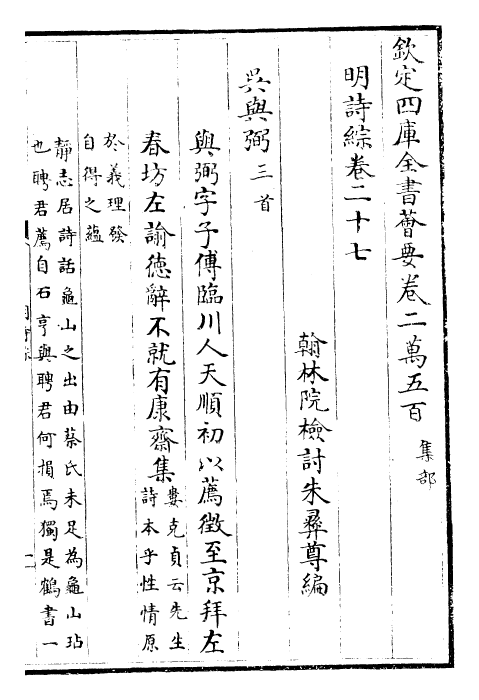 欽定四庫全書薈要卷二萬五百 集部
明詩綜卷二十七
翰林院檢討朱彝尊編
吳與弼三首
與弼字子傅臨川人天順初以薦徵至京拜左
春坊左諭德辭不就有康齋集婁克貞云先生
詩本乎性情原
於義理發
自得之蘊
靜志居詩話龜山之出由蔡氏未足為龜山玷
也聘君薦自石亨與聘君何損焉獨是鶴書一